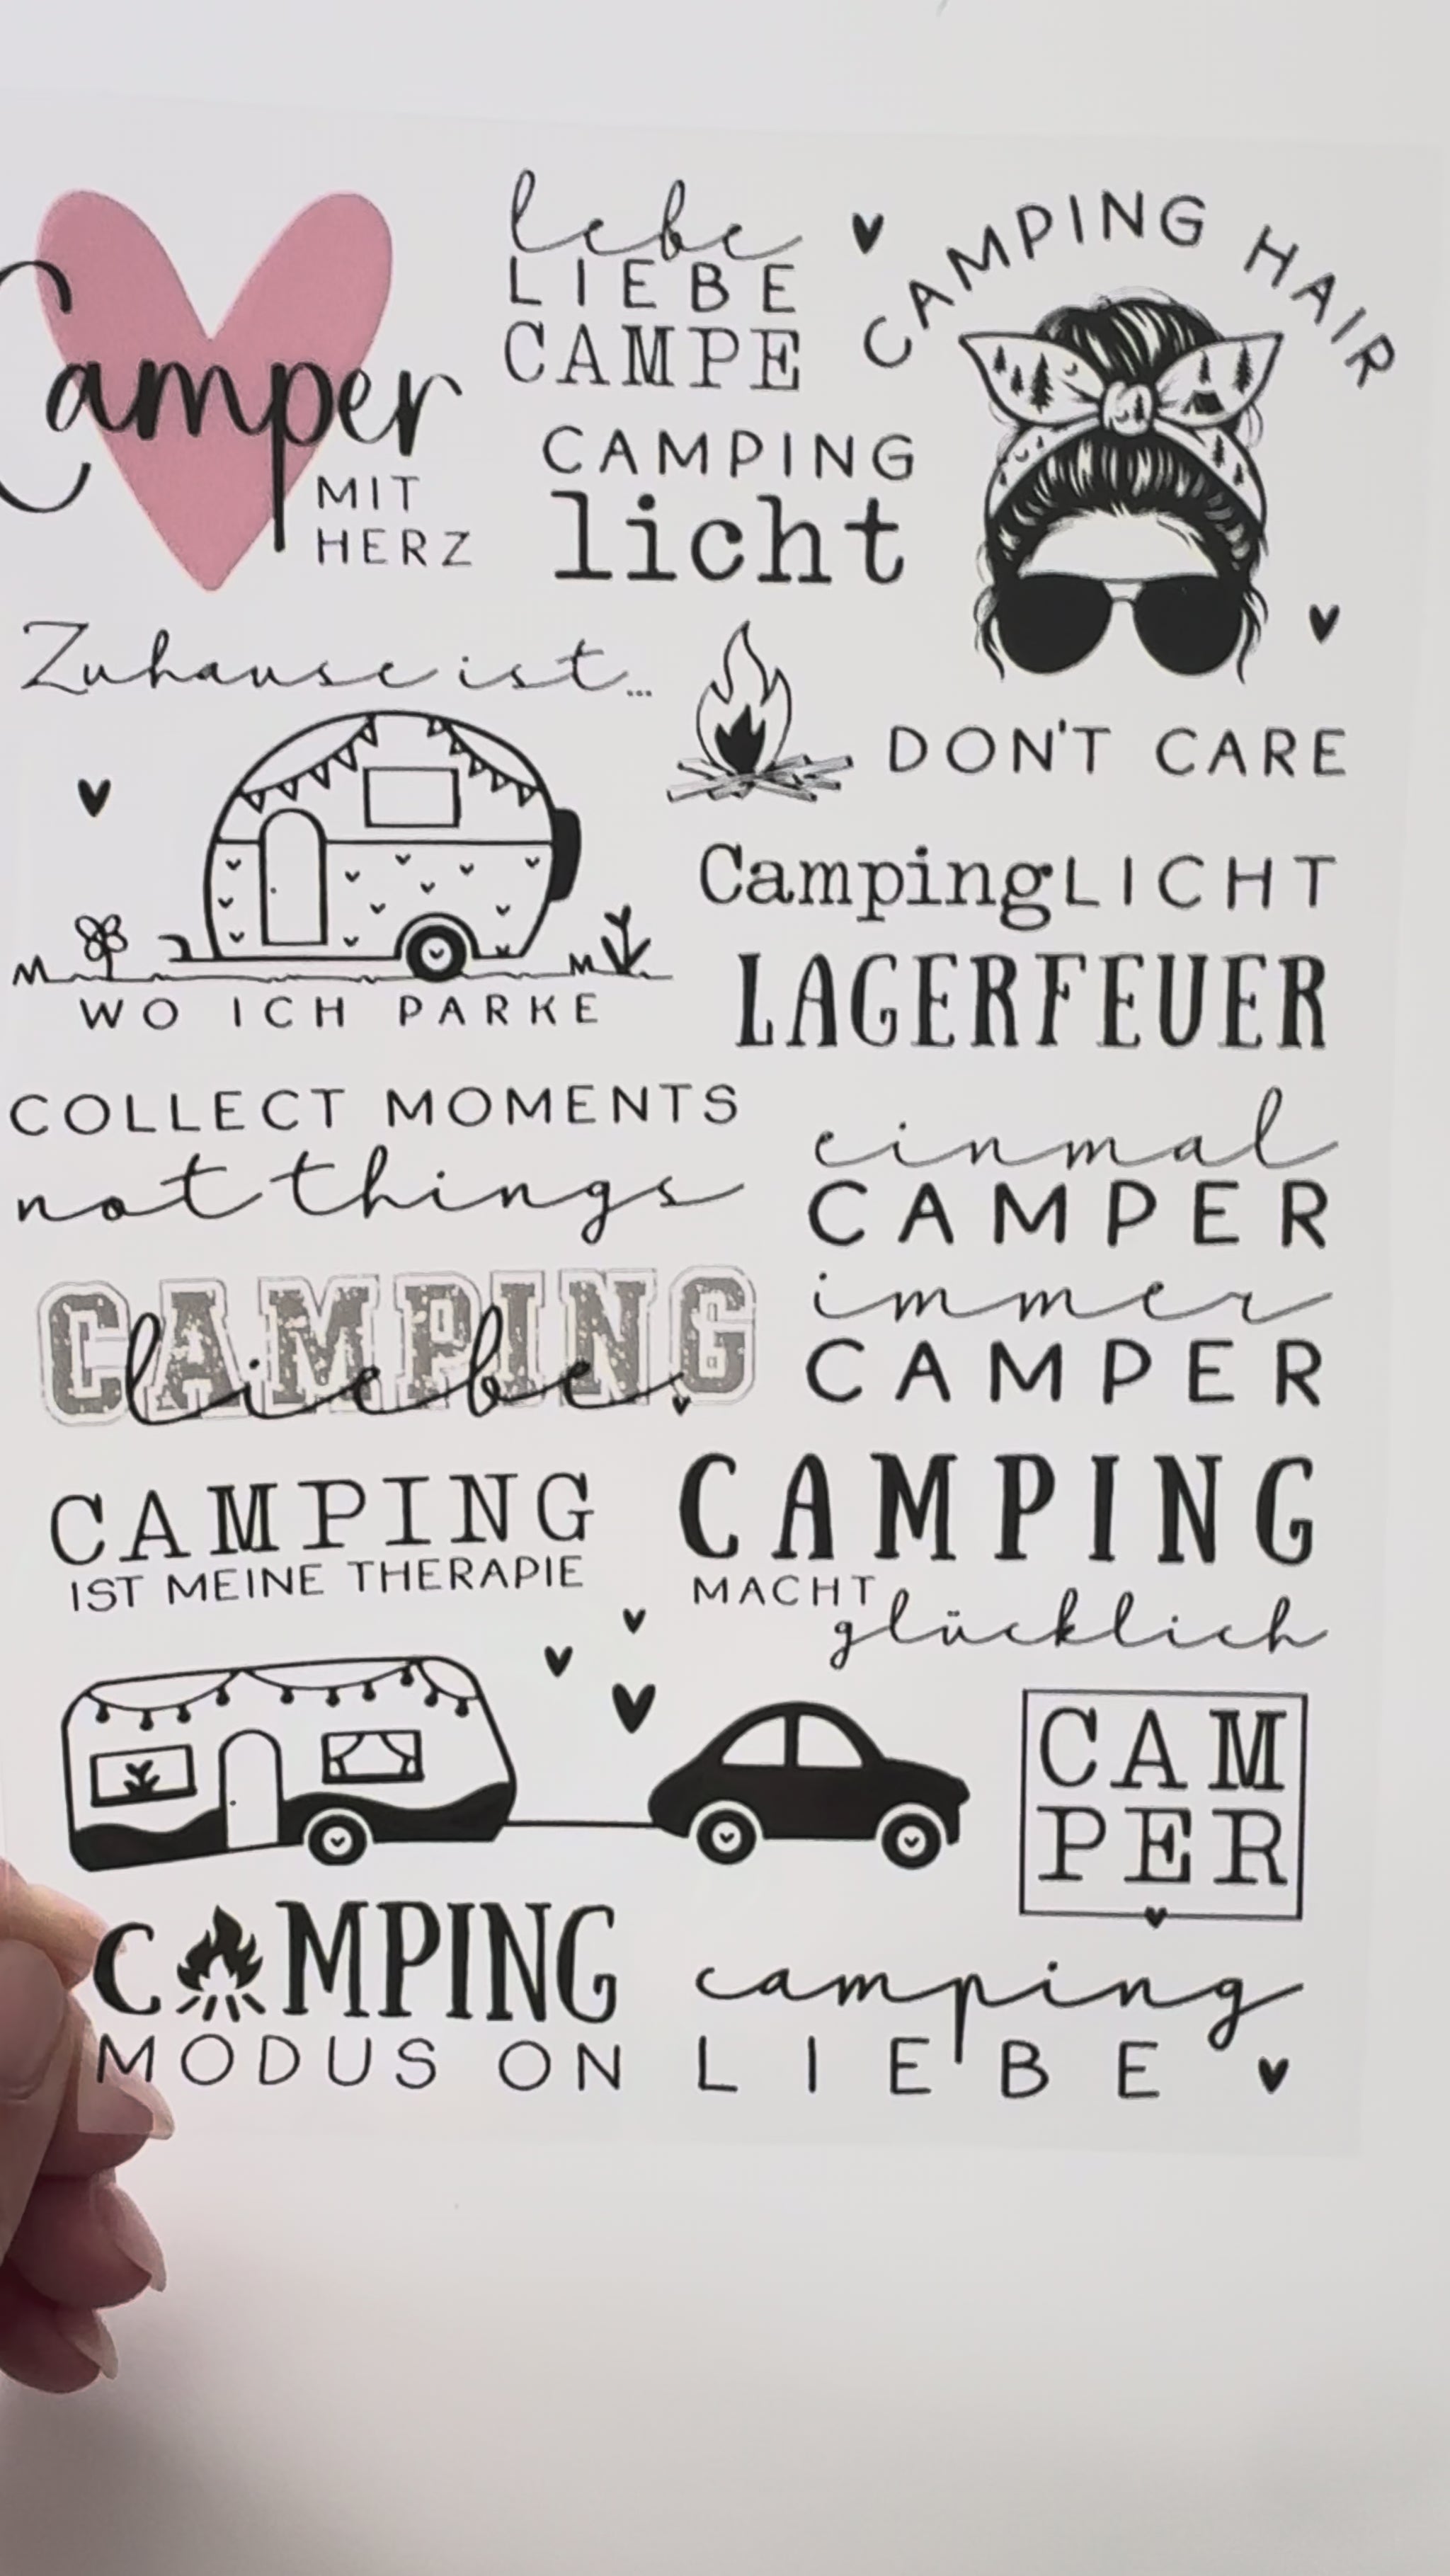 Camper
MIT
HERZ
lebe
LIEBE
CAMPE
CAMPING HAIR
DON'T CARE
CAMPING
licht
Zuhause ist...
WO ICH PARKE
CampingLICHT
LAGERFEUER
COLLECT MOMENTS
not things
einmal
CAMPER
immer
CAMPER
CAMPING
liebe
CAMPING
IST MEINE THERAPIE
CAMPING
MACHT
glücklich
CAM
PER
CAMPING
MODUS ON
camping
LIEBE